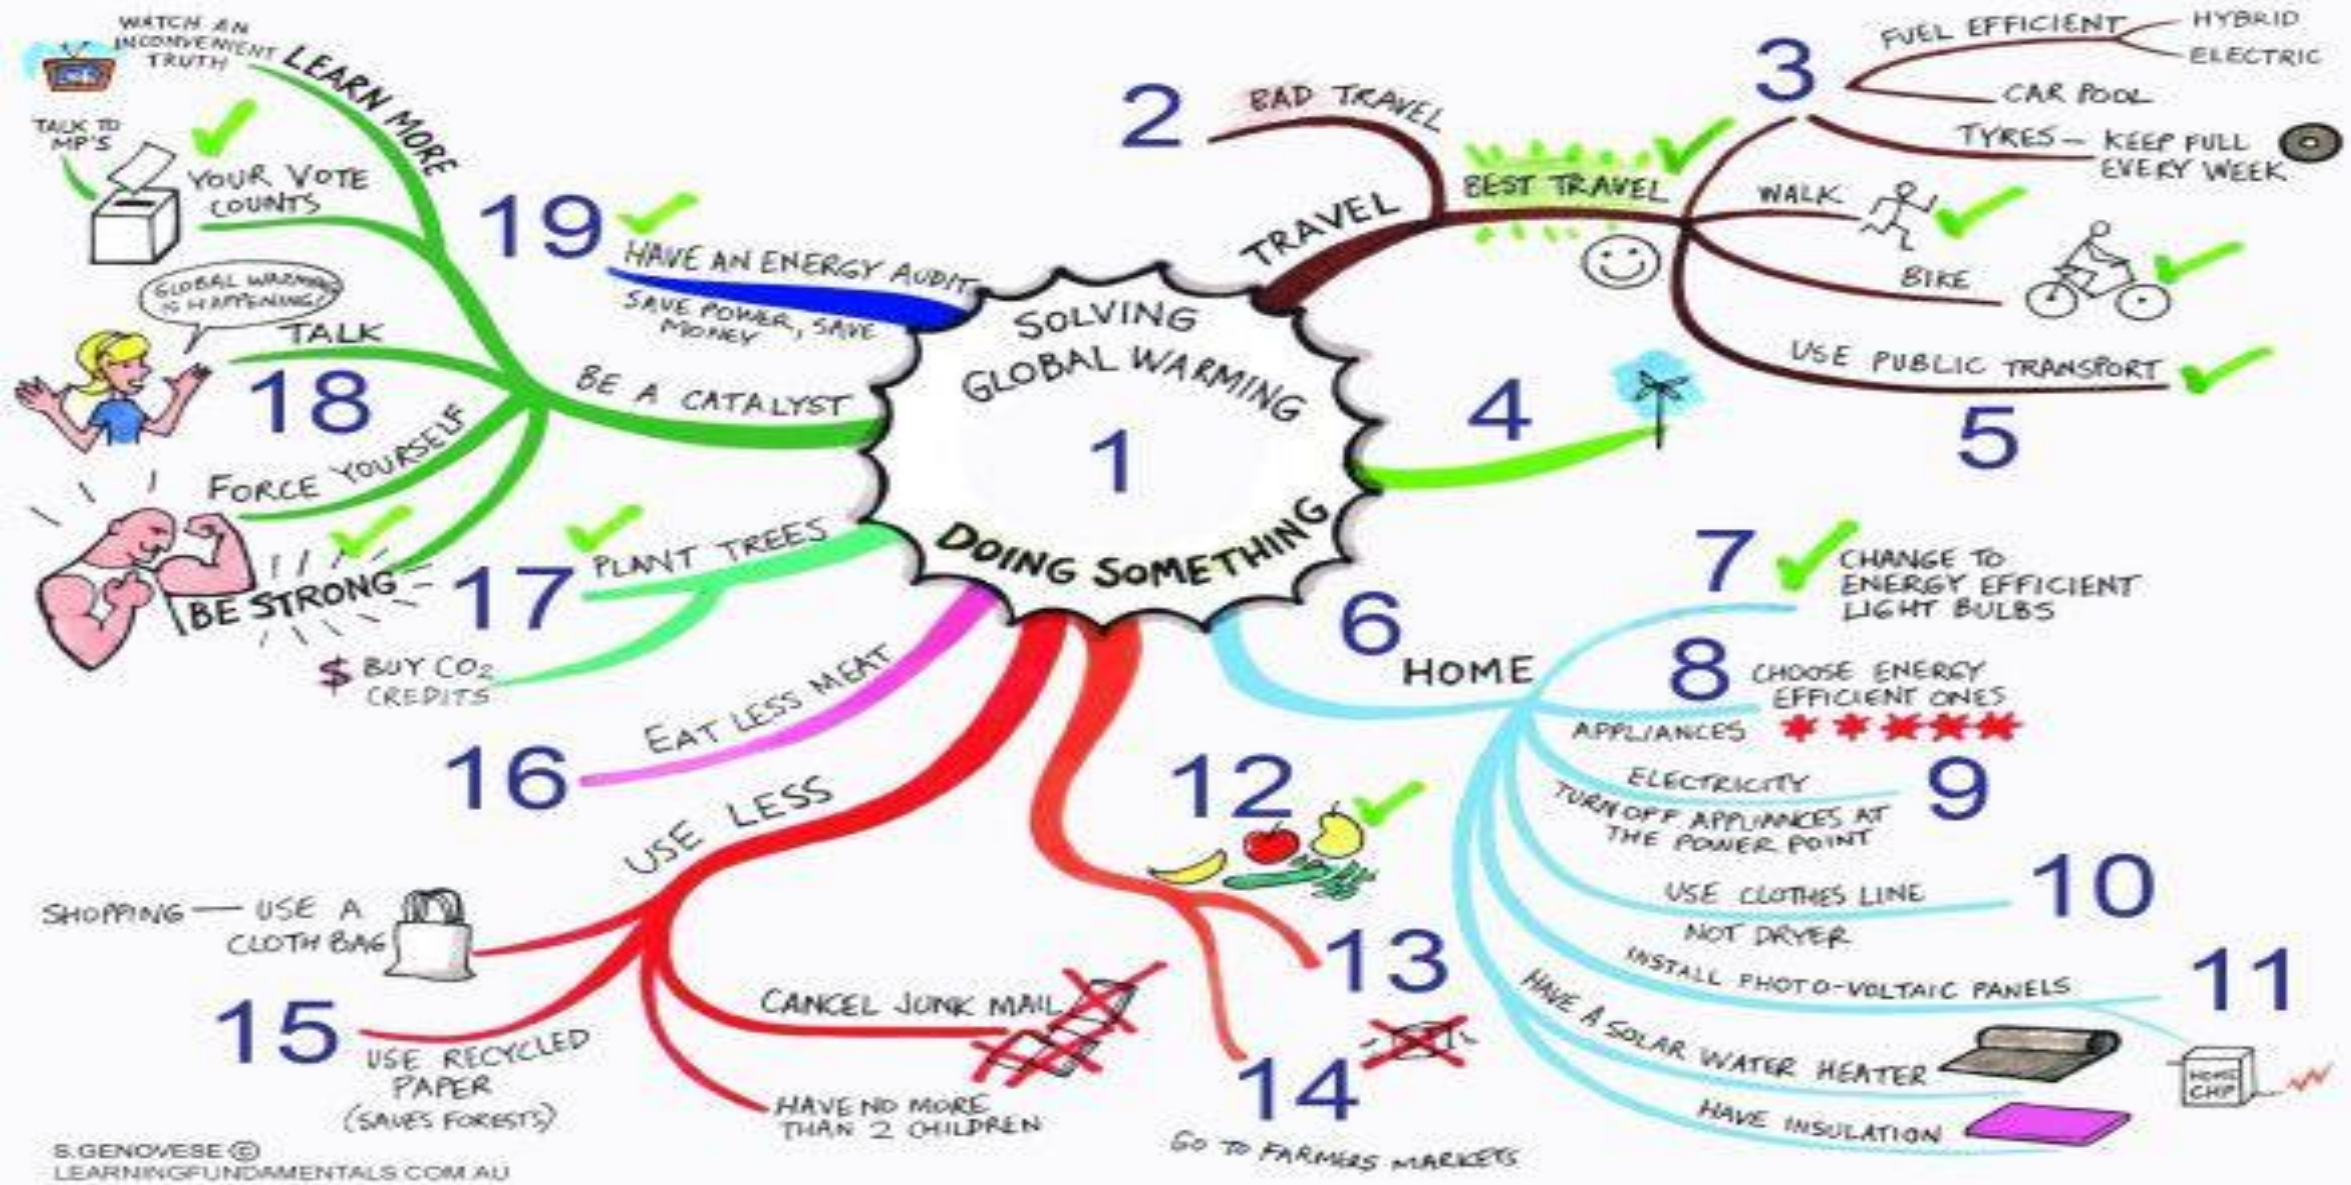 SOLVING
GLOBAL WARMING
1
DOING SOMETHING
TRAVEL
2
BAD TRAVEL
BEST TRAVEL
3
FUEL EFFICIENT
HYBRID
ELECTRIC
CAR POOL
TYRES — KEEP FULL
EVERY WEEK
WALK
BIKE
USE PUBLIC TRANSPORT
4
5
6
HOME
7
CHANGE TO
ENERGY EFFICIENT
LIGHT BULBS
8
CHOOSE ENERGY
EFFICIENT ONES
APPLIANCES
ELECTRICITY
9
TURN OFF APPLIANCES AT
THE POWER POINT
10
USE CLOTHES LINE
NOT DRYER
11
INSTALL PHOTO-VOLTAIC PANELS
HAVE A SOLAR WATER HEATER
HAVE INSULATION
12
13
14
GO TO FARMERS MARKETS
USE LESS
SHOPPING — USE A
CLOTH BAG
15
USE RECYCLED
PAPER
(SAVES FORESTS)
CANCEL JUNK MAIL
HAVE NO MORE
THAN 2 CHILDREN
16
EAT LESS MEAT
17
PLANT TREES
$ BUY CO2
CREDITS
BE A CATALYST
LEARN MORE
WATCH AN
INCONVENIENT
TRUTH
YOUR VOTE
COUNTS
TALK TO
MP'S
18
TALK
GLOBAL WARMING
IS HAPPENING!
FORCE YOURSELF
BE STRONG
19
HAVE AN ENERGY AUDIT
SAVE POWER, SAVE
MONEY
S.GENOVESE ©
LEARNINGFUNDAMENTALS.COM.AU